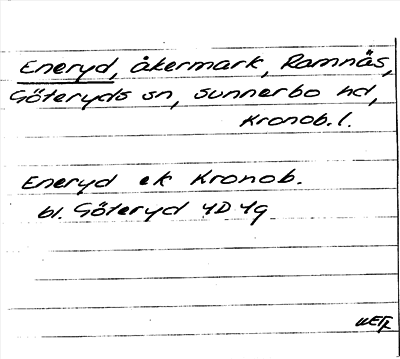 Eneryd, åkermark, Ramnäs,
Göteryds sn, Sunnerbo hd,
Kronob. l.
Eneryd ek Kronob.
bl. Göteryd 4D 4g